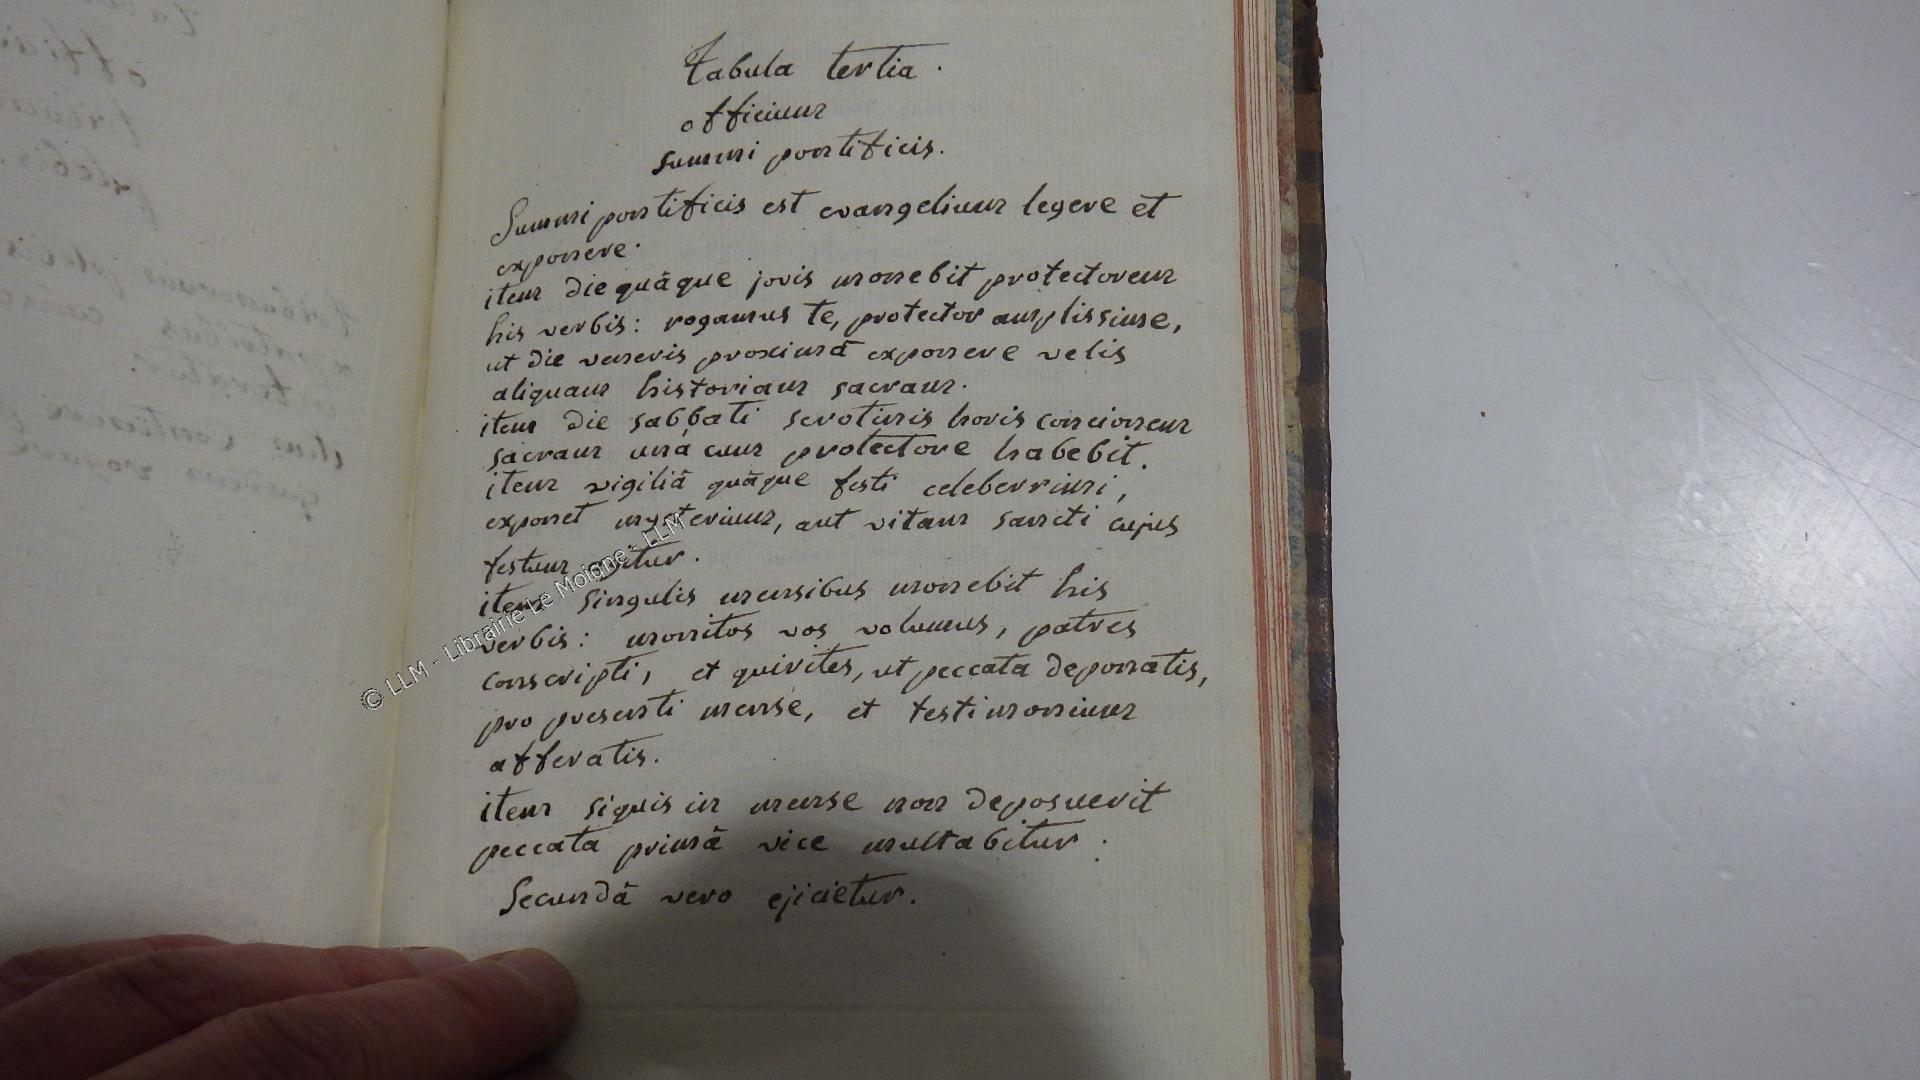 tabula tertia.
officium
summi pontificis.
Summi pontificis est evangelium legere et
exponere.
item die quâque jovis monebit protectorem
his verbis: rogamus te, protector amplissime,
ut die veneris proximâ exponere velis
aliquam historiam sacram.
item die sabbati serotinis horis concionem
sacram unâ cum protectore habebit.
item vigiliâ quâque festi celeberrimi,
exponet mysterium, aut vitam sancti cujus
festum agitur.
item singulis mensibus monebit his
verbis: monitos vos volumus, patres
conscripti, et quirites, ut peccata deponatis,
pro presenti mense, et testimonium
afferatis.
item siquis in mense non deposuerit
peccata primâ vice multabitur.
Secundâ vero ejicietur.
© LLM - Librairie Le Moigne - LLM